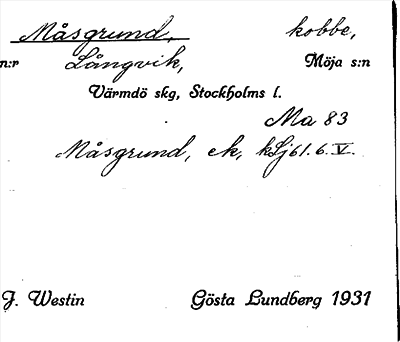 Måsgrund, kobbe,
n:r Långvik, Möja s:n
Värmdö skg, Stockholms l.
Ma 83
Måsgrund, ek, kLj61.6.V.
J. Westin Gösta Lundberg 1931